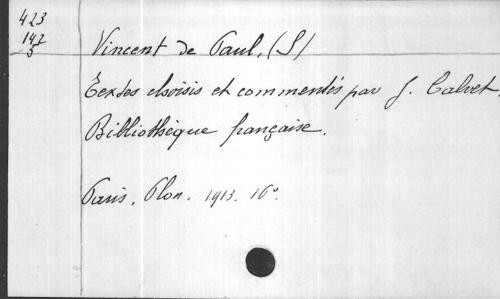 423
142
5
Vincent de Paul, (S)
Textes choisis et commentés par J. Calvet.
Bibliothèque française.
Paris, Plon. 1913. 16°.